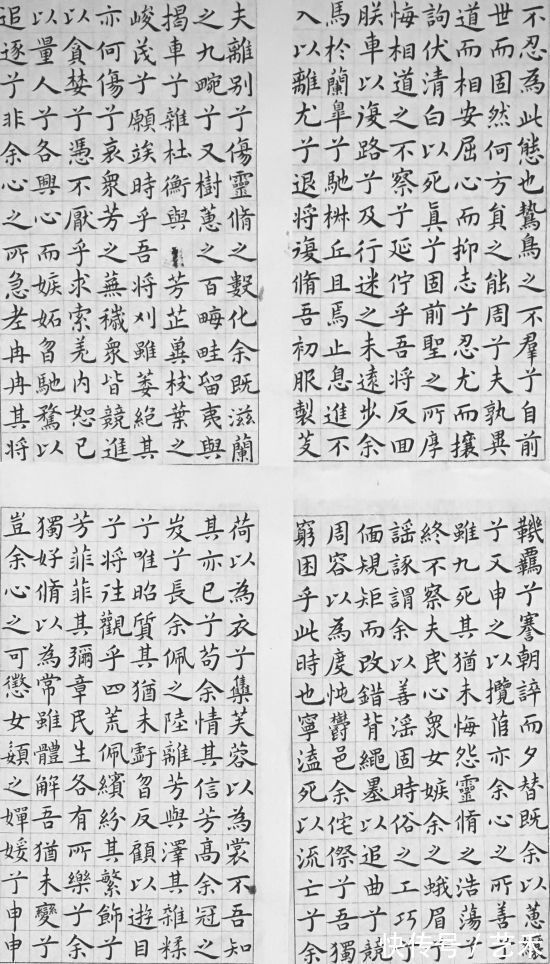 不忍為此態也鷙鳥之不羣兮自前
世而固然何方員之能周兮夫孰異
道而相安屈心而抑志兮忍尤而攘
詢伏清白以死真兮固前聖之所厚
悔相道之不察兮延佇乎吾將反回
朕車以復路兮及行迷之未遠步余
馬於蘭皋兮馳椒丘且焉止息進不
入以離尤兮退將復脩吾初服製芰
夫離别兮傷靈脩之數化余既滋蘭
之九畹兮又樹蕙之百畮畦留夷與
揭車兮雜杜衡與芳芷冀枝葉之
峻茂兮願竢時乎吾將刈雖萎絕其
亦何傷兮哀衆芳之蕪穢衆皆競進
以貪婪兮憑不厭乎求索羌内恕己
以量人兮各興心而嫉妬曶馳騖以
追逐兮非余心之所急老冉冉其將
鞿羈兮謇朝誶而夕替既余以蕙纕
兮又申之以攬茝亦余心之所善兮
雖九死其猶未悔怨靈脩之浩蕩兮
終不察夫民心衆女嫉余之蛾眉兮
謠諑謂余以善淫固時俗之工巧兮
偭規矩而改錯背繩墨以追曲兮競
周容以為度忳鬱邑余侘傺兮吾獨
窮困乎此時也寧溘死以流亡兮余
荷以為衣兮集芙蓉以為裳不吾知
其亦已兮苟余情其信芳高余冠之
岌兮長余佩之陸離芳與澤其雜糅
兮唯昭質其猶未虧曶反顧以遊目
兮將往觀乎四荒佩繽紛其繁飾兮
芳菲菲其彌章民生各有所樂兮余
獨好脩以為常雖體解吾猶未變兮
豈余心之可懲女嬃之嬋媛兮申申
快传号